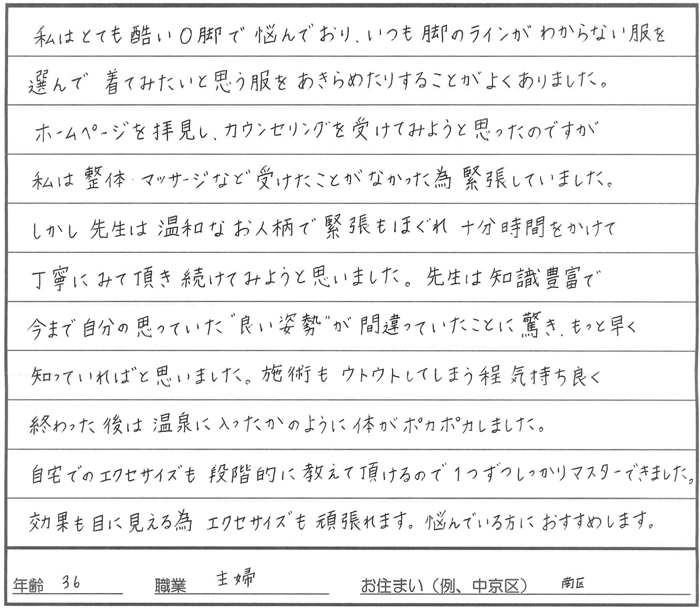 私はとても酷いO脚で悩んでおり、いつも脚のラインがわからない服を
選んで 着てみたいと思う服をあきらめたりすることがよくありました。
ホームページを拝見し、カウンセリングを受けてみようと思ったのですが
私は 整体・マッサージなど受けたことがなかった為 緊張していました。
しかし 先生は 温和なお人柄で 緊張もほぐれ 十分時間をかけて
丁寧にみて頂き 続けてみようと思いました。先生は知識豊富で
今まで自分の思っていた“良い姿勢”が間違っていたことに驚き、もっと早く
知っていればと思いました。施術も ウトウトしてしまう程 気持ち良く
終わった後は 温泉に入ったかのように体がポカポカしました。
自宅でのエクセサイズも 段階的に教えて頂けるので1つずつしっかりマスターできました。
効果も目に見える為 エクセサイズも頑張れます。悩んでいる方におすすめします。
年齢 36 職業 主婦 お住まい(例、中京区) 南区